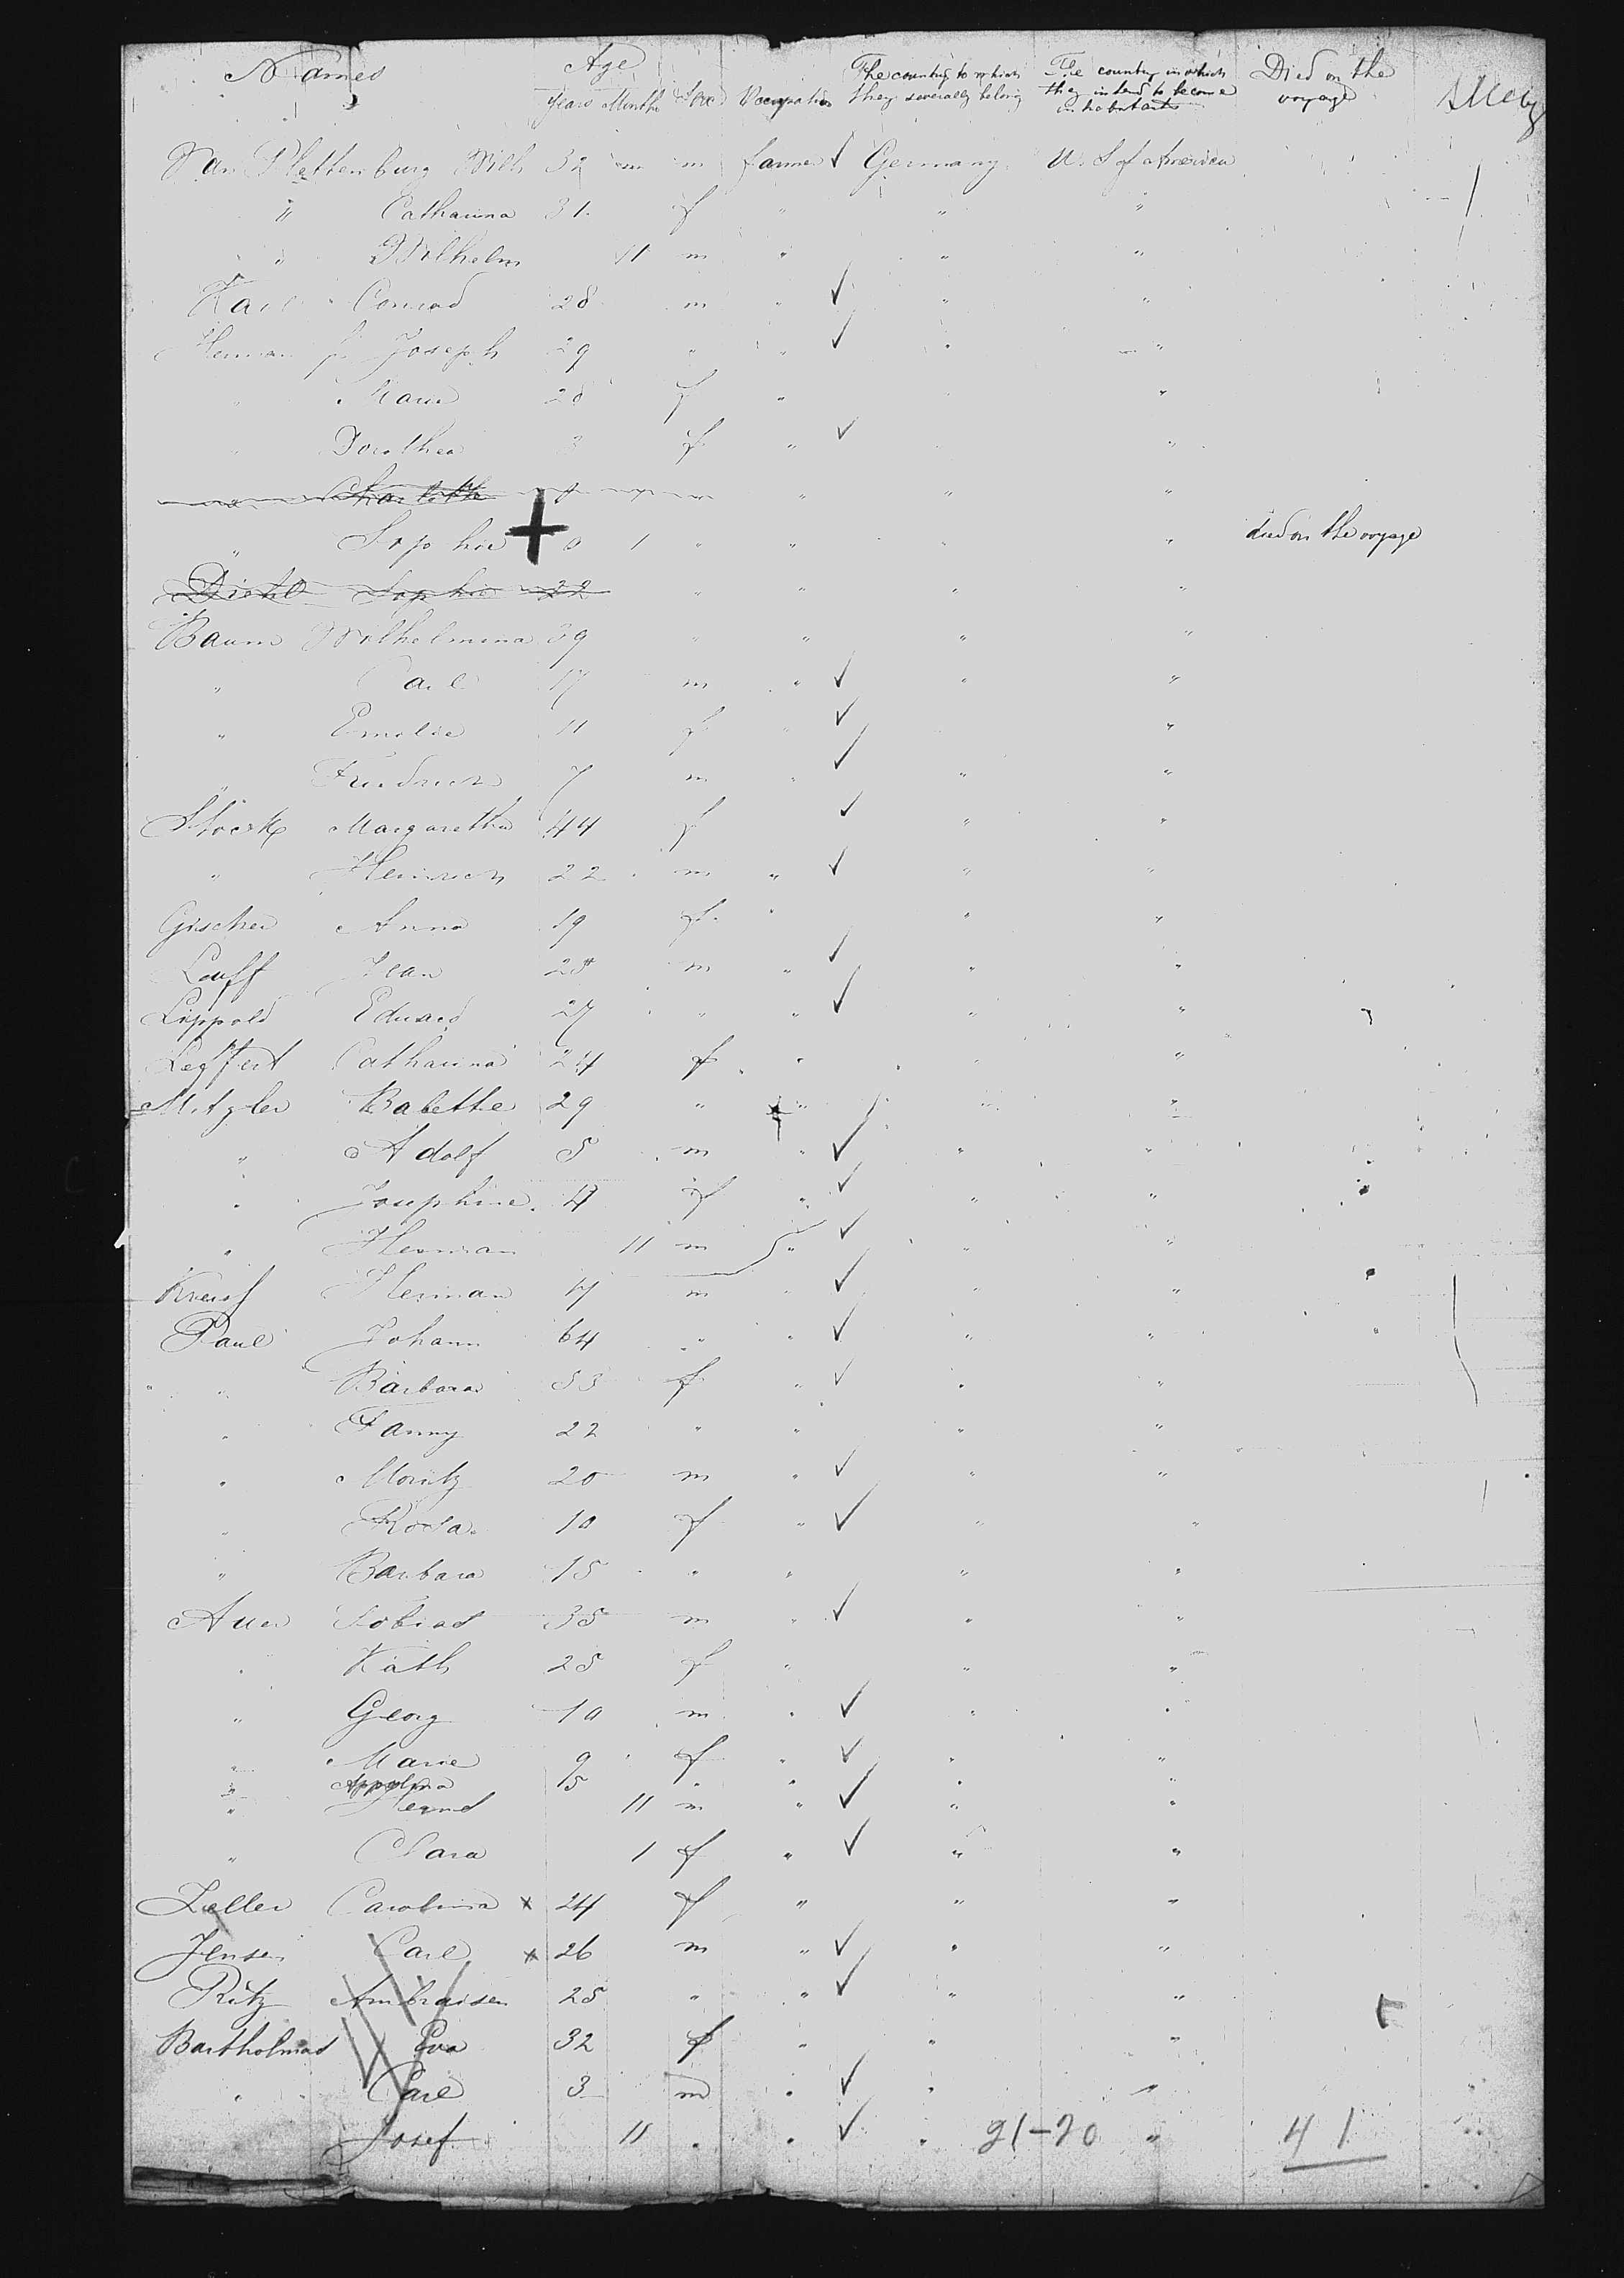 Names Age The country to which The country in which Died on the
Years Months Sex Occupation they severally belong they intend to become voyage
inhabitants
Van Plettenburg Wilh 32 m farmer Germany U. S. of America
" Catharina 31 f " " "
" Wilhelm 11 m " " "
Karl Conrad 28 m " " "
Herman Joseph 29 " " " "
" Marie 28 f " "
" Dorothea 3 f " "
" " "
" Sophie 0 1 " " " " died on the voyage
Diehl Sophie 22 " " " "
Baum Wilhelmina 39 " " " "
" Carl 17 m " " "
" Emilie 11 f " "
" Friedrich 7 m " " "
Stoerk Margaretha 44 f " "
" Heinrich 22 m " " "
Gischer Anna 19 f " " "
Lauff Jean 28 m " " "
Lippold Eduard 27 " " " "
Leffert Catharina 24 f " " "
Metzler Babette 29 " " " "
" Adolf 5 m " " "
" Josephine 4 f " " "
" Herman 11 m " " "
Herman 17 m " " "
Paul Johann 64 " " " "
" Barbara 53 f " " "
" Fanny 22 " " " "
" Moritz 20 m " " "
" Rosa 10 f " " "
" Barbara 15 " " " "
Auer Tobias 35 m " " "
" Kath 25 f " " "
" Georg 10 m " " "
" Marie 9 f " " "
" Appolona 5 " " " "
" 11 m " " "
" Clara 1 f " " "
Zeller Carolina x 24 f " " "
Jensen Carl x 26 m " " "
Ritz 25 " " " "
Bartholmad Eva 32 f " " "
" Carl 3 m " " "
Josef 11 " " " 21-20 " 41